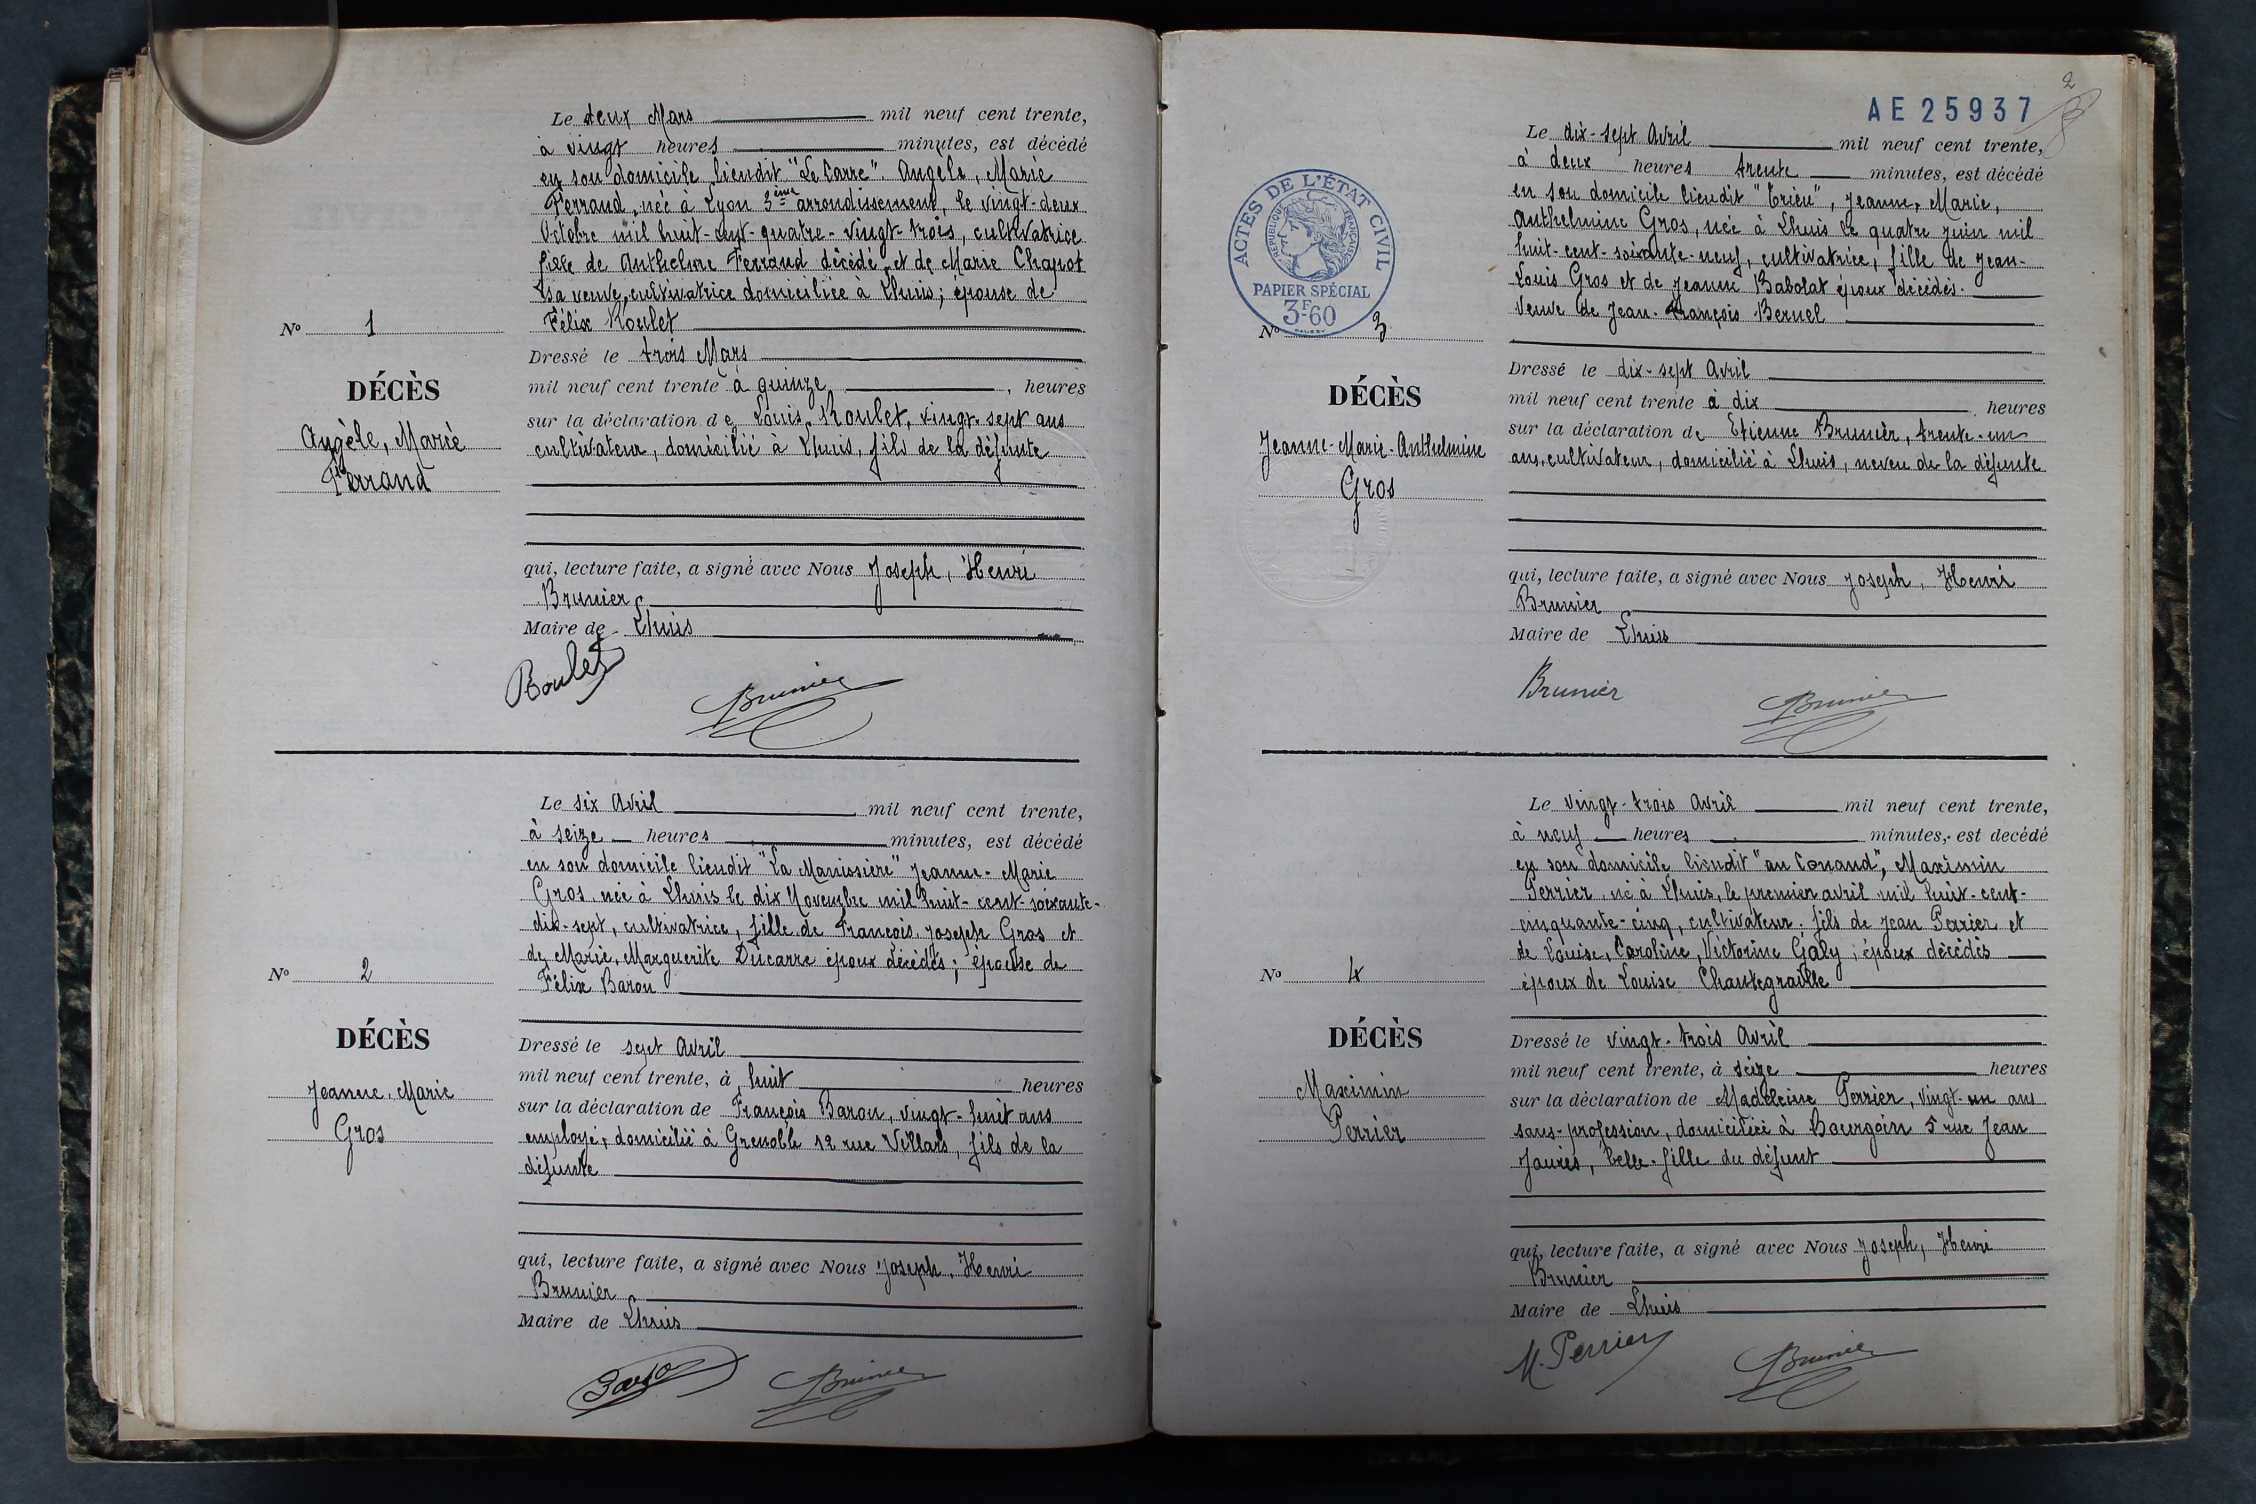 Le deux Mars mil neuf cent trente,
à vingt heures minutes, est décédé
en son domicile lieudit "Le Carre" Angèle, Marie
Ferrand, née à Lyon 3ème arrondissement, le vingt-deux
Octobre mil huit-cent-quatre-vingt-trois, cultivatrice
fille de Anthelme Ferrand décédé et de Marie Chapot
sa veuve, cultivatrice domiciliée à Lhuis; épouse de
Félix Roulet
Nº 1
DÉCÈS
Angèle, Marie
Ferrand
Dressé le trois Mars
mil neuf cent trente à quinze, heures
sur la déclaration de Louis Roulet, vingt-sept ans
cultivateur, domicilié à Lhuis, fils de la défunte
qui, lecture faite, a signé avec Nous Joseph, Henri
Brunier
Maire de Lhuis
Roulet
Brunier
Le six Avril mil neuf cent trente,
à seize heures minutes, est décédé
en son domicile lieudit "La Manissière" Jeanne-Marie
Gros, née à Lhuis le dix Novembre mil huit-cent-soixante-
dix-sept, cultivatrice, fille de François Joseph Gros et
de Marie, Marguerite Ducarre époux décédés; épouse de
Félix Baron
Nº 2
DÉCÈS
Jeanne, Marie
Gros
Dressé le sept Avril
mil neuf cent trente, à huit heures
sur la déclaration de François Baron, vingt-huit ans
employé, domicilié à Grenoble 12 rue Villars, fils de la
défunte
qui, lecture faite, a signé avec Nous Joseph, Henri
Brunier
Maire de Lhuis
Brunier
2
AE25937
Le dix-sept Avril mil neuf cent trente,
à deux heures trente minutes, est décédé
en son domicile lieudit "Crieu", Jeanne, Marie,
Anthelmine Gros, née à Lhuis le quatre juin mil
huit-cent-soixante-neuf, cultivatrice, fille de Jean-
Louis Gros et de Jeanne Babolat époux décédés.
Veuve de Jean-François Beruel
ACTES DE L'ÉTAT CIVIL
RÉPUBLIQUE FRANÇAISE
PAPIER SPÉCIAL
3F60
Nº 3
DÉCÈS
Jeanne-Marie-Anthelmine
Gros
Dressé le dix-sept Avril
mil neuf cent trente à dix heures
sur la déclaration de Etienne Brunier, trente-un
ans, cultivateur, domicilié à Lhuis, neveu de la défunte
qui, lecture faite, a signé avec Nous Joseph, Henri
Brunier
Maire de Lhuis
Brunier
Brunier
Le vingt-trois Avril mil neuf cent trente,
à neuf heures minutes, est decédé
en son domicile lieudit "au Conand", Maximin
Perrier, né à Lhuis, le premier avril mil huit-cent-
cinquante-cinq, cultivateur; fils de Jean Perrier et
de Louise, Caroline, Victorine Galy; époux décédés
époux de Louise Chantegraille
Nº 4
DÉCÈS
Maximin
Perrier
Dressé le vingt-trois Avril
mil neuf cent trente, à seize heures
sur la déclaration de Madeleine Perrier, vingt-un ans
sans-profession, domiciliée à Bourgoin 5 rue Jean
Jaurès, belle-fille du défunt
qui, lecture faite, a signé avec Nous Joseph, Henri
Brunier
Maire de Lhuis
M. Perrier
Brunier